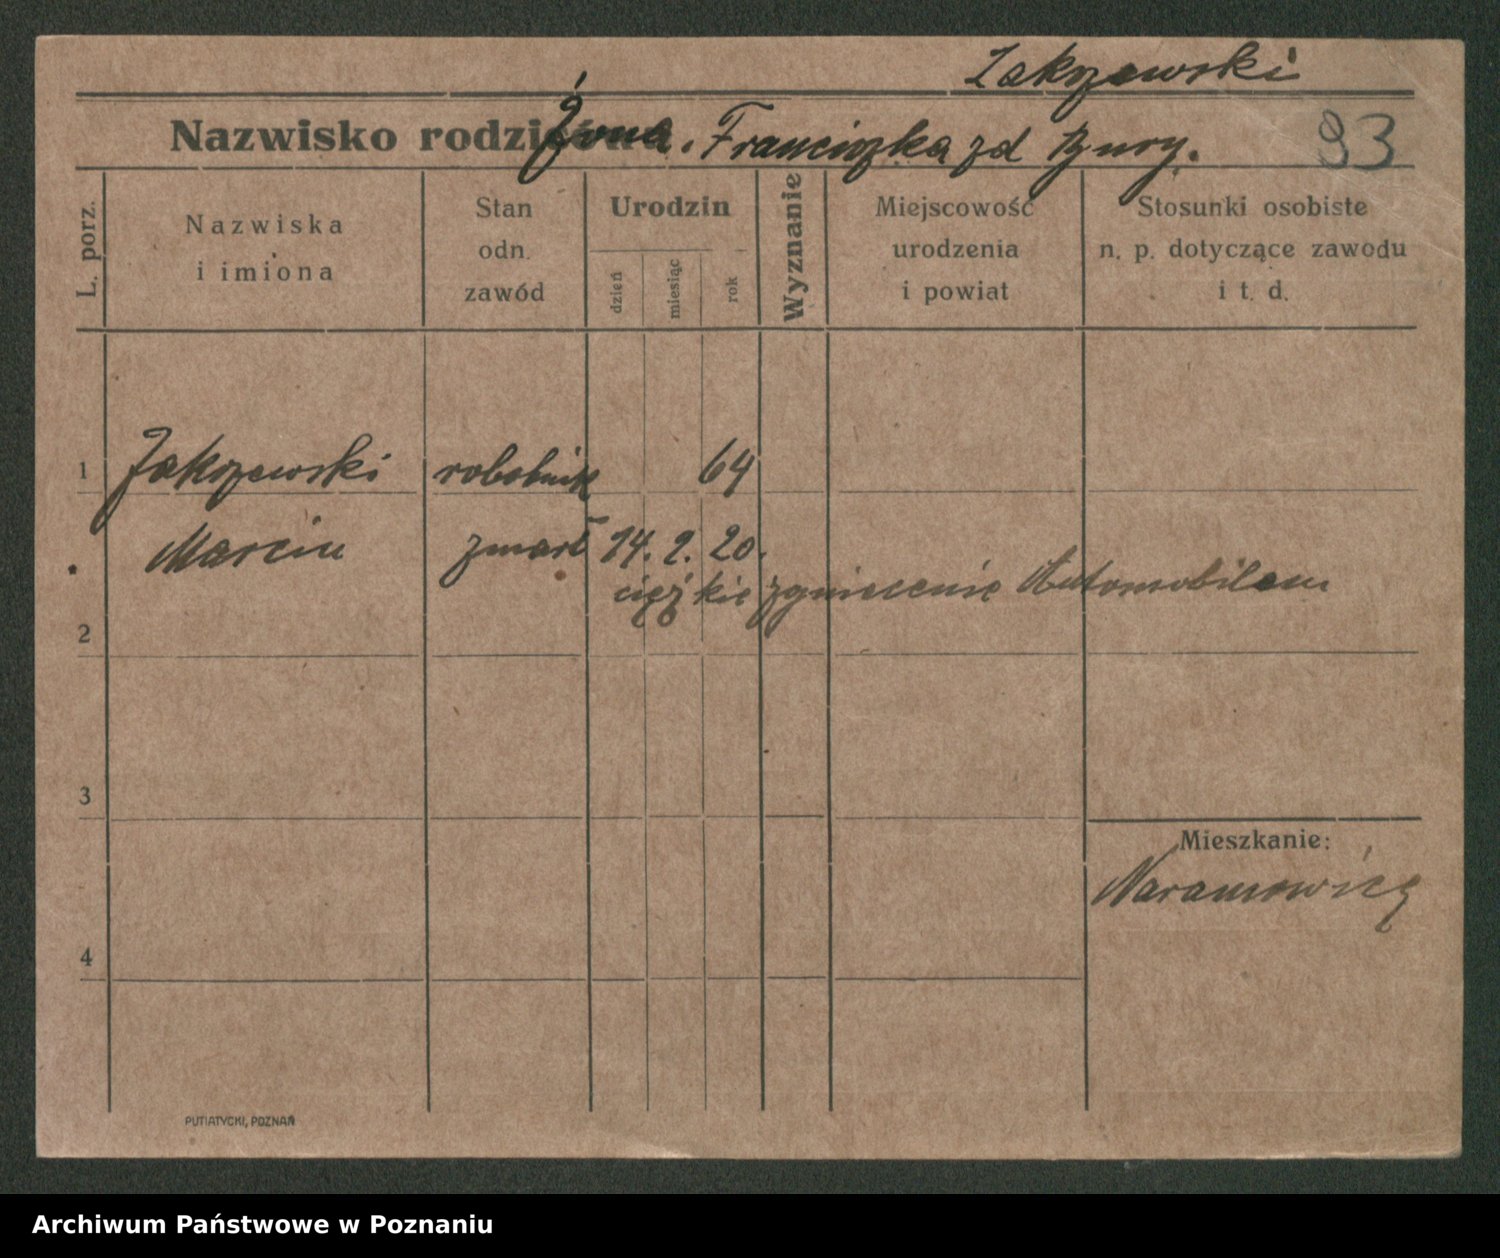 Zakrzewski
Nazwisko rodzi
Żona. Franciszka zd
93
L. porz.
Nazwiska
i imiona
Stan
odn.
zawód
Urodzin
dzień
miesiąc
rok
Wyznanie
Miejscowość
urodzenia
i powiat
Stosunki osobiste
n. p. dotyczące zawodu
i t. d.
1
Zakrzewski robotnik 64
Marcin zmarł 14. 2. 20.
ciężkie zgniecenie Automobilem
2
3
Mieszkanie:
Naramowice
4
PUTIATYCKI, POZNAŃ
Archiwum Państwowe w Poznaniu